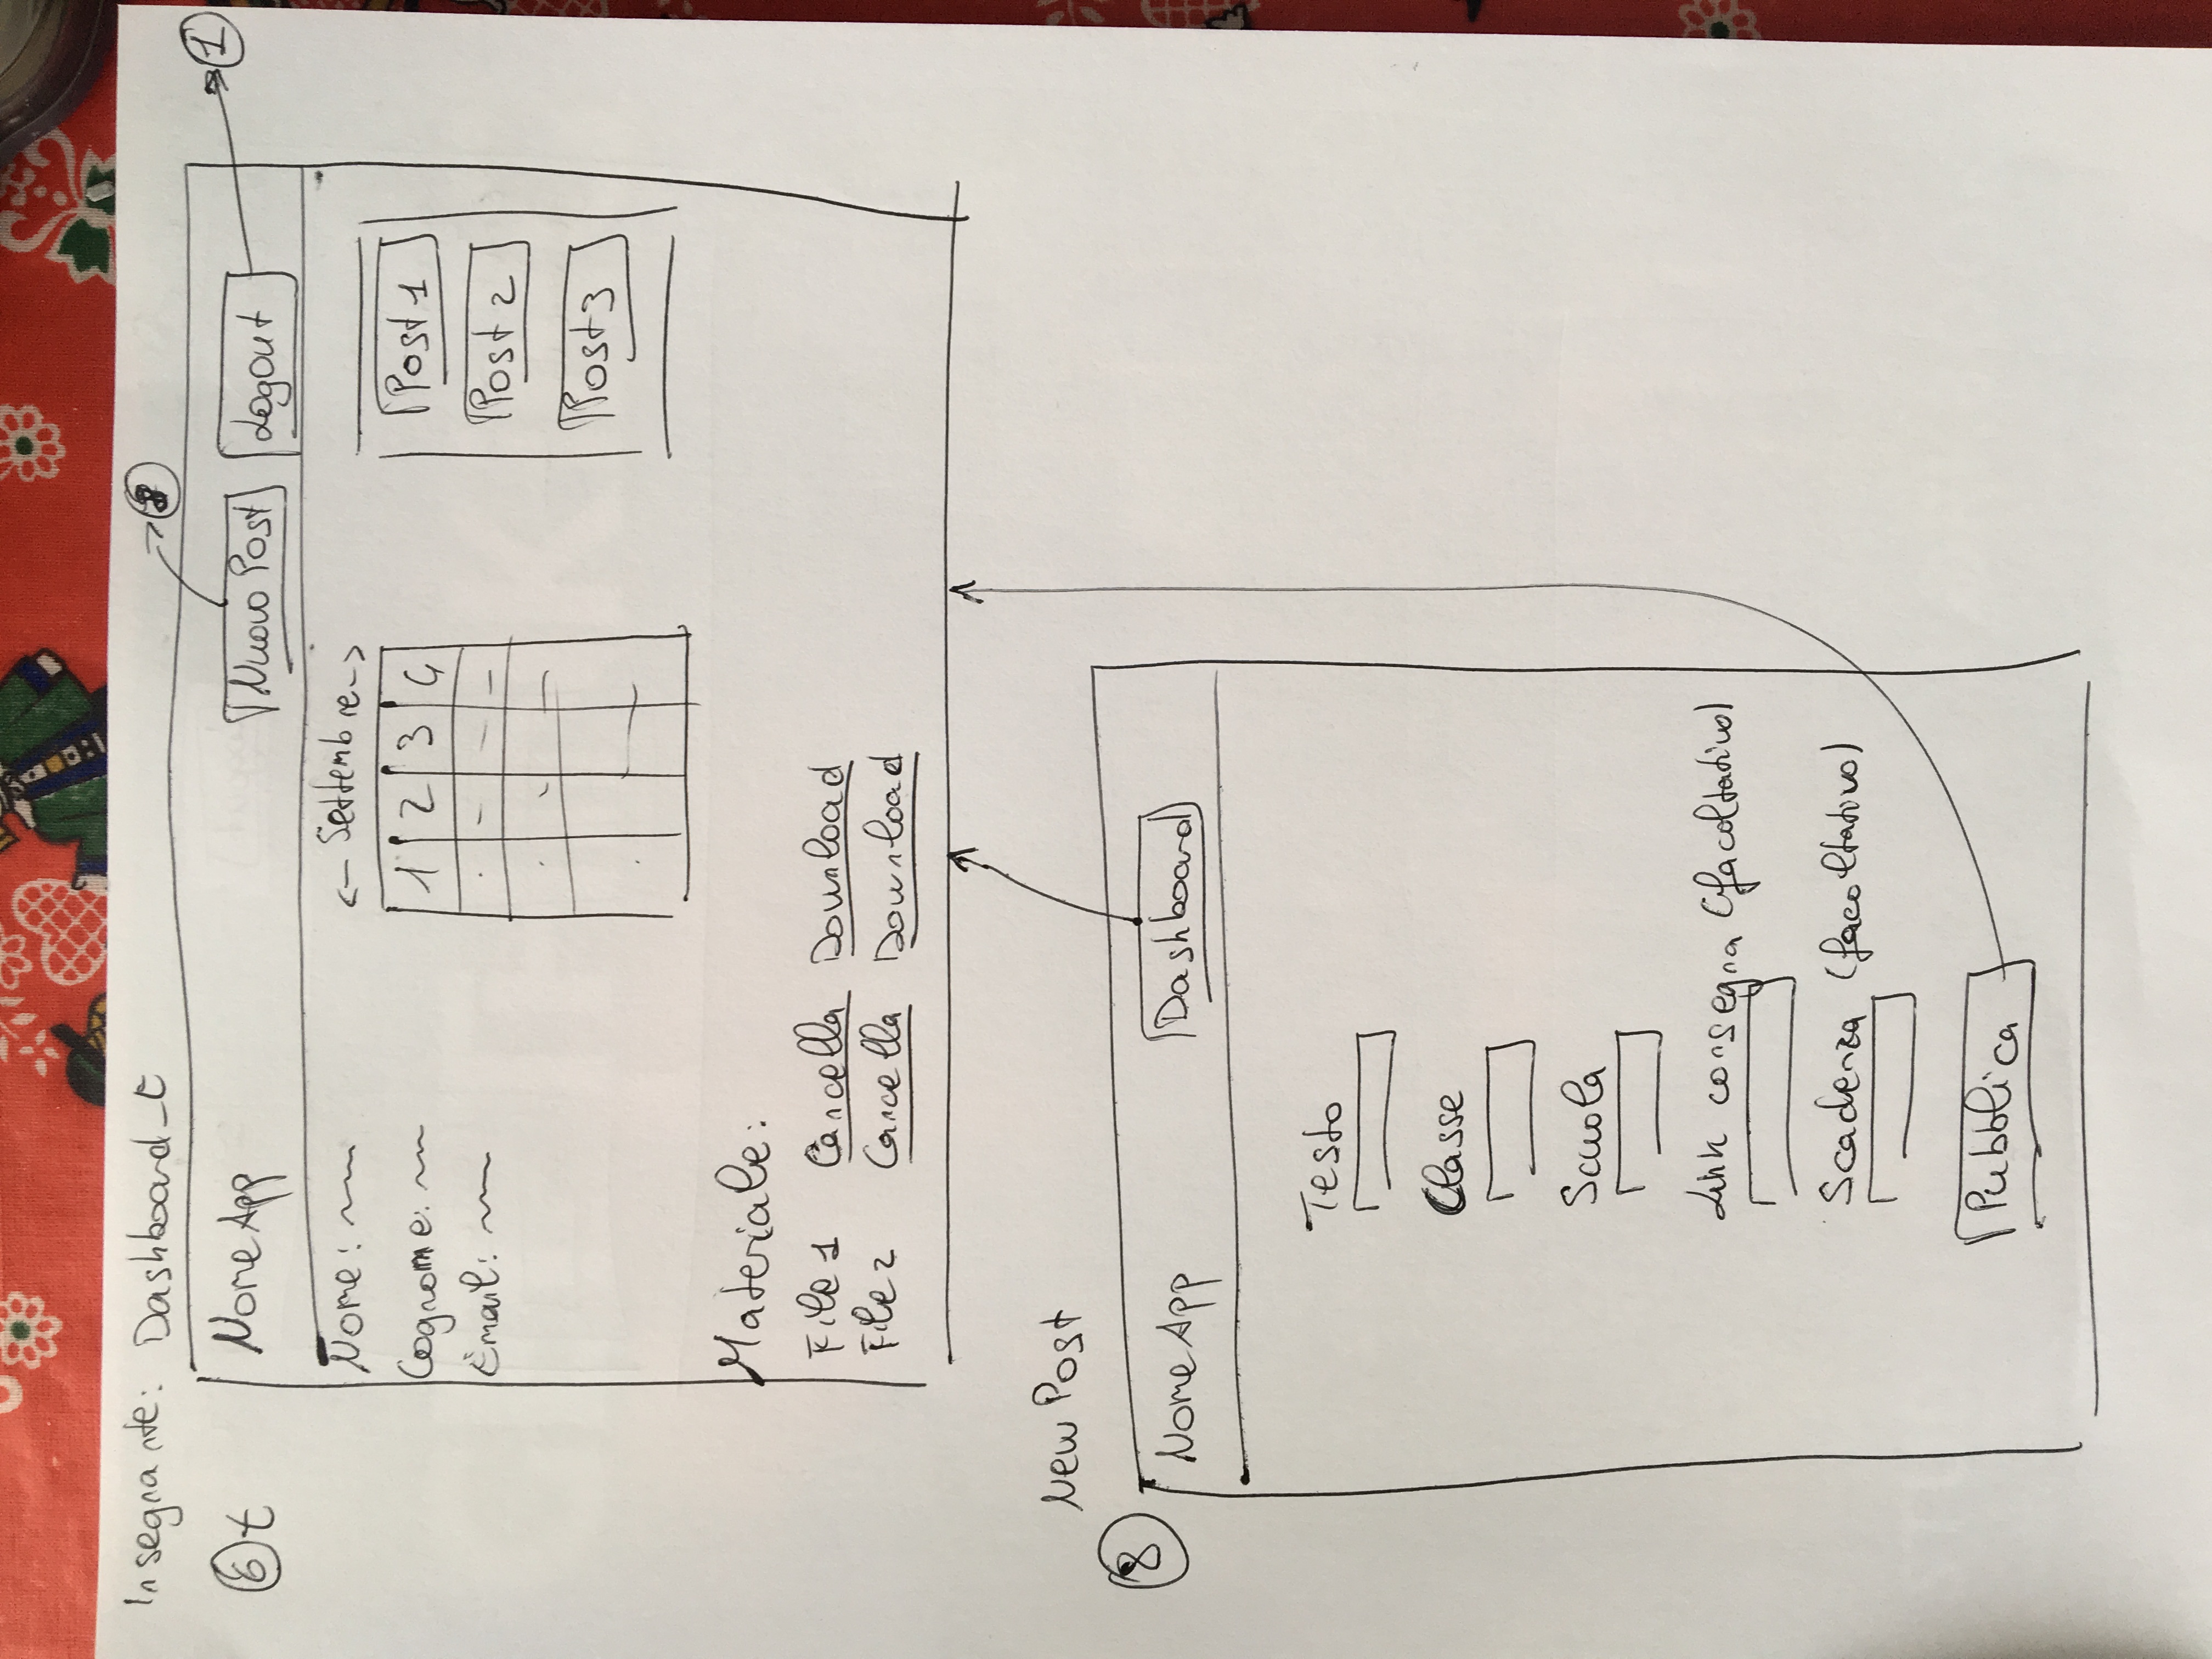 Insegnante: Dashboard_t
8
6 t
NomeApp
Nuovo Post
Logout
1
Nome:
Cognome:
Email:
<- Settembre ->
1 2 3 4
Post 1
Post 2
Post 3
Materiale:
File 1 Cancella Download
File 2 Cancella Download
New Post
8
NomeApp
Dashboard
Testo
Classe
Scuola
Link consegna (facoltativo)
Scadenza (facoltativo)
Pubblica